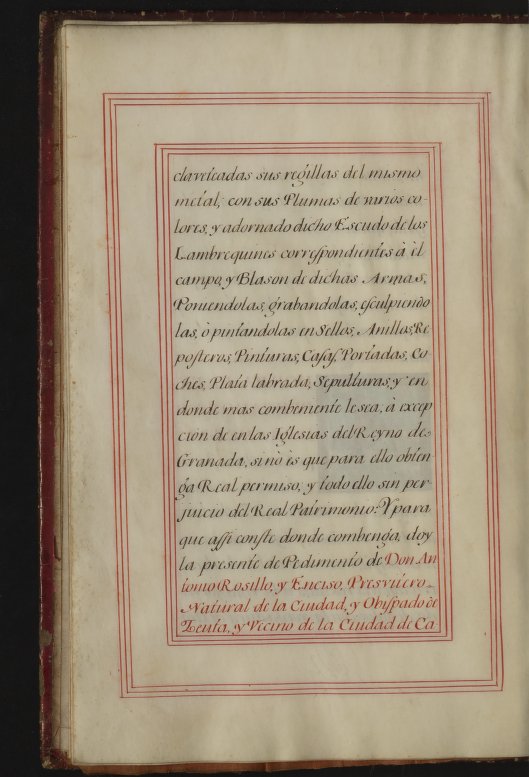 claveteadas sus regillas del mismo
metal, con sus Plumas de varios co-
lores, y adornado dicho Escudo de los
Lambrequines correspondientes à èl
campo, y Blason de dichas Armas,
Poniendolas, grabandolas, esculpiendo
las, ò pintandolas en Sellos, Anillos, Re
posteros, Pinturas, Casas, Portadas, Co
ches, Plata labrada, Sepulturas, y en
donde mas combeniente le sea, à excep
cion de en las Iglesias del Reyno de
Granada, sinò ès que para ello obten
ga Real permiso, y todo ello sin per-
juicio del Real Patrimonio: Y para
que assi conste donde combenga, doy
la presente de Pedimento de Don An
tonio Rosillo, y Enciso, Presvitero
Natural de la Ciudad, y Obispado de
Zeuta, y Vecino de la Ciudad de Ca